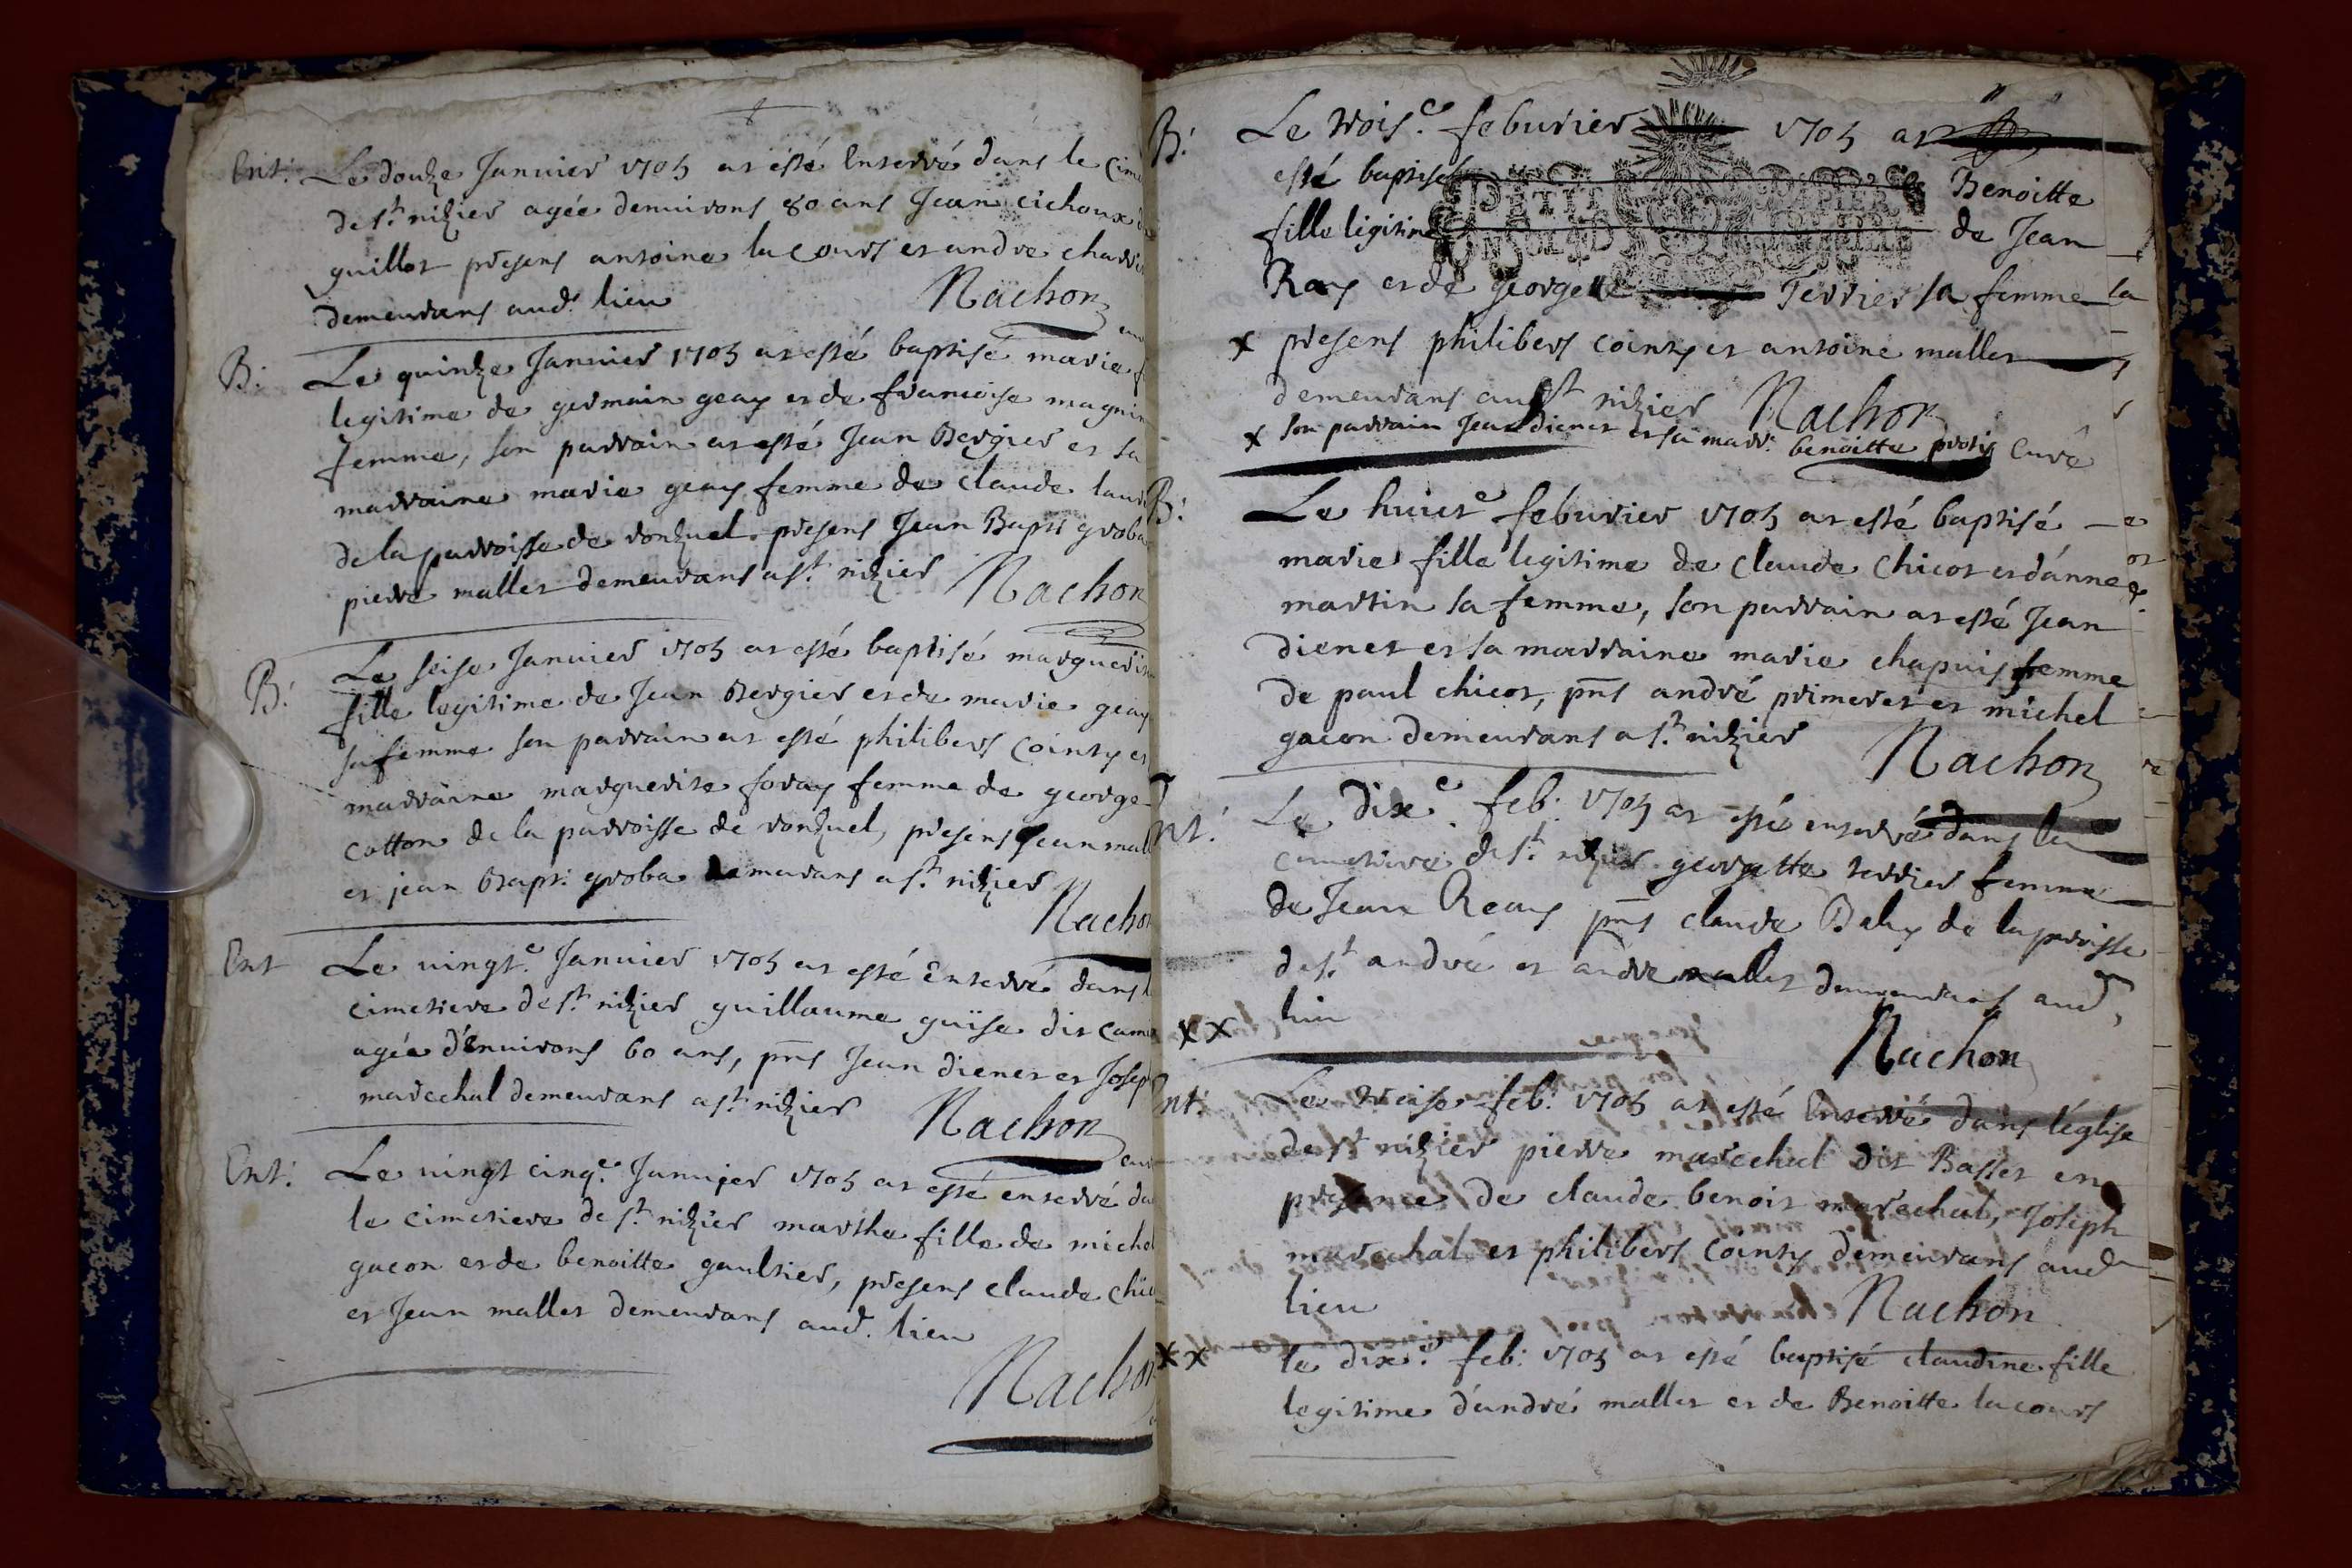 Ent: Le douze Januier 1705 at esté Enterré dans le
de st nizier agée denuirons 80 ans Jean cichoux
guillot presens antoine lacours et andre
demeurans aud. lieu Nachon
B: Le quinze Januier 1705 at esté baptisé marie
legitime de germain geay et de francoise magnin
femme, son parrain at esté Jean Bergier et sa
marraine marie geay femme de claude
de la parroisse de ronzuel presens Jean Bapt groba
pierre mallet demeurans a st. nizier Nachon
B: Le seise Januier 1705 at esté baptisé
fille legitime de Jean Bergier et de marie geay
sa femme son parrain at esté philibers cointy et
marraine marguerite foray femme de george
cotton de la parroisse de ronzuel, presens Jean
et jean Bapt: groba demeurans a st. nizier
Nachon
Ent Le uingt.e Januier 1705 at esté Enterré dans
cimetiere de st. nizier guillaume guise dit
agée d'enuirons 60 ans, pns Jean dienet et Joseph
marechal demeurans a st. nizier Nachon
Ent: Le uingt cinq.e Januier 1705 at esté enterré
le cimetiere de st. nizier marthe fille de michel
gacon et de benoitte gaultier, presens claude
et Jean mallet demeurans aud. lieu
Nachon
B: Le trois.e feburier 1705 at
esté baptisé Benoitte
fille legitime de Jean
Ray et de georgette Terrier sa femme
x presens philibers cointy et antoine mallet
demeurans aud st nizier Nachon
x son parrain Jean dienet et sa marr. benoitte curé
B: Le huict.e feburier 1705 at esté baptisé
marie fille legitime de claude chicot et d'anne
martin sa femme, son parrain at esté Jean
dienet et sa marraine marie chapuis femme
de paul chicot, pns andré primeret et michel
gacon demeurans a st. nizier
Nachon
Le dix.e feb. 1705 at esté enterré dans le
cimetiere de st. nizier georgette terrier femme
de Jean Reay pns claude Baly de la proisse
de st. andré et andre mallet demeurans aud
lieu
xx Nachon
Le treise feb. 1705 at esté Enterré dans léglise
de st nizier pierre marechal dit Basset en
presence de claude benoit marechal, Joseph
marechal et philibers cointy demeurans aud
lieu Nachon
xx le dix.e feb: 1705 at esté baptisé claudine fille
legitime d'andré mallet et de Benoitte lacours